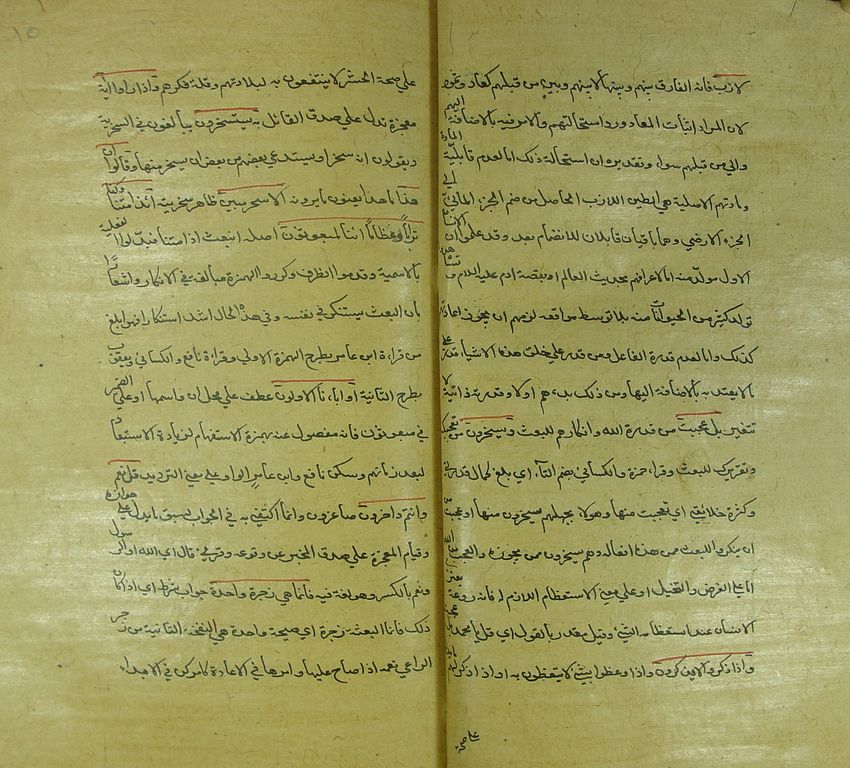 لازب فانه الفارق بينهم وبينها لا بينهم وبين من قبلهم كعاد وثمود
لان المراد اثبات المعاد ورد استحالتهم والامر فيه بالاضافة اليهم
والى من قبلهم سواء وتقديره ان استحالة ذلك اما لعدم قابلية المادة
ومادتهم الاصلية هي الطين اللازب الحاصل من ضم الجزء المائي الى
الجزء الارضي وهما باقيان قابلان للانضمام بعد وقد علموا ان الانسان
الاول مولد منه اما لاعترافهم بحدوث العالم او بقصة ادم عليه السلام وشاهدوا
تولد كثير من الحيوانات منه بلا توسط مواقعة فلزمهم ان يجوزوا اعادتهم
كذلك واما لعدم قدرة الفاعل ومن قدر على خلق هذه الاشياء قدر على
ما لا يعتد به بالاضافة اليها ومن ذلك بدءهم اولا وقدرته ذاتية لا
تتغير بل عجبت من قدرة الله وانكارهم للبعث ويسخرون من تعجبك
وتقريرك للبعث وقرا حمزة والكسائي بضم التاء اي بلغ كمال قدرتي
وكثرة خلائقي اني تعجبت منها وهؤلاء بجهلهم يسخرون منها او عجبت من
ان ينكروا البعث ممن هذه افعاله وهم يسخرون ممن يجوزه والعجب من الله
اما على الفرض والتخييل او على معنى الاستعظام اللازم له فانه روعة تعتري
الانسان عند استعظامه الشيء وقيل مقدر بالقول اي قل يا محمد بل عجبت
واذا ذكروا لا يذكرون واذا وعظوا بشيء لا يتعظون به او اذا ذكر لهم ما يدل
على صحة
على صحة الحشر لا ينتفعون به لبلادتهم وقلة فكرهم واذا راوا اية
معجزة تدل على صدق القائل به يستسخرون يبالغون في السخرية
ويقولون انه سحر او يستدعي بعضهم من بعض ان يسخر منها وقالوا ان
هذا ما هذا يعنون ما يرونه الا سحر مبين ظاهر سحريته ائذا متنا وكنا
ترابا وعظاما ائنا لمبعوثون اصله انبعث اذا متنا فبدلوا الفعلية
بالاسمية وقدموا الظرف وكرروا الهمزة مبالغة في الانكار واشعارا
بان البعث مستنكر في نفسه وفي هذه الحال اشد استنكارا فهو ابلغ
من قراءة ابن عامر بطرح الهمزة الاولى وقراءة نافع والكسائي ويعقوب
بطرح الثانية اواباؤنا الاولون عطف على محل ان واسمها او على الضمير
في مبعوثون فانه مفصول عنه بهمزة الاستفهام لزيادة الاستبعاد
لبعد زمانهم وسكن نافع وابن عامر الواو على معنى الترديد قل نعم
وانتم داخرون صاغرون وانما اكتفى به في الجواب لسبق ما يدل على جوازه
وقيام المعجزة على صدق المخبر عن وقوعه وقرئ قال اي الله او الرسول
ونعم بالكسر وهو لغة فيه فانما هي زجرة واحدة جواب شرط اي اذا كان
ذلك فانما البعثة زجرة اي صيحة واحدة هي النفخة الثانية من زجر
الراعي غنمه اذا صاح عليها وامرها في الاعادة كامر كن في الابداء